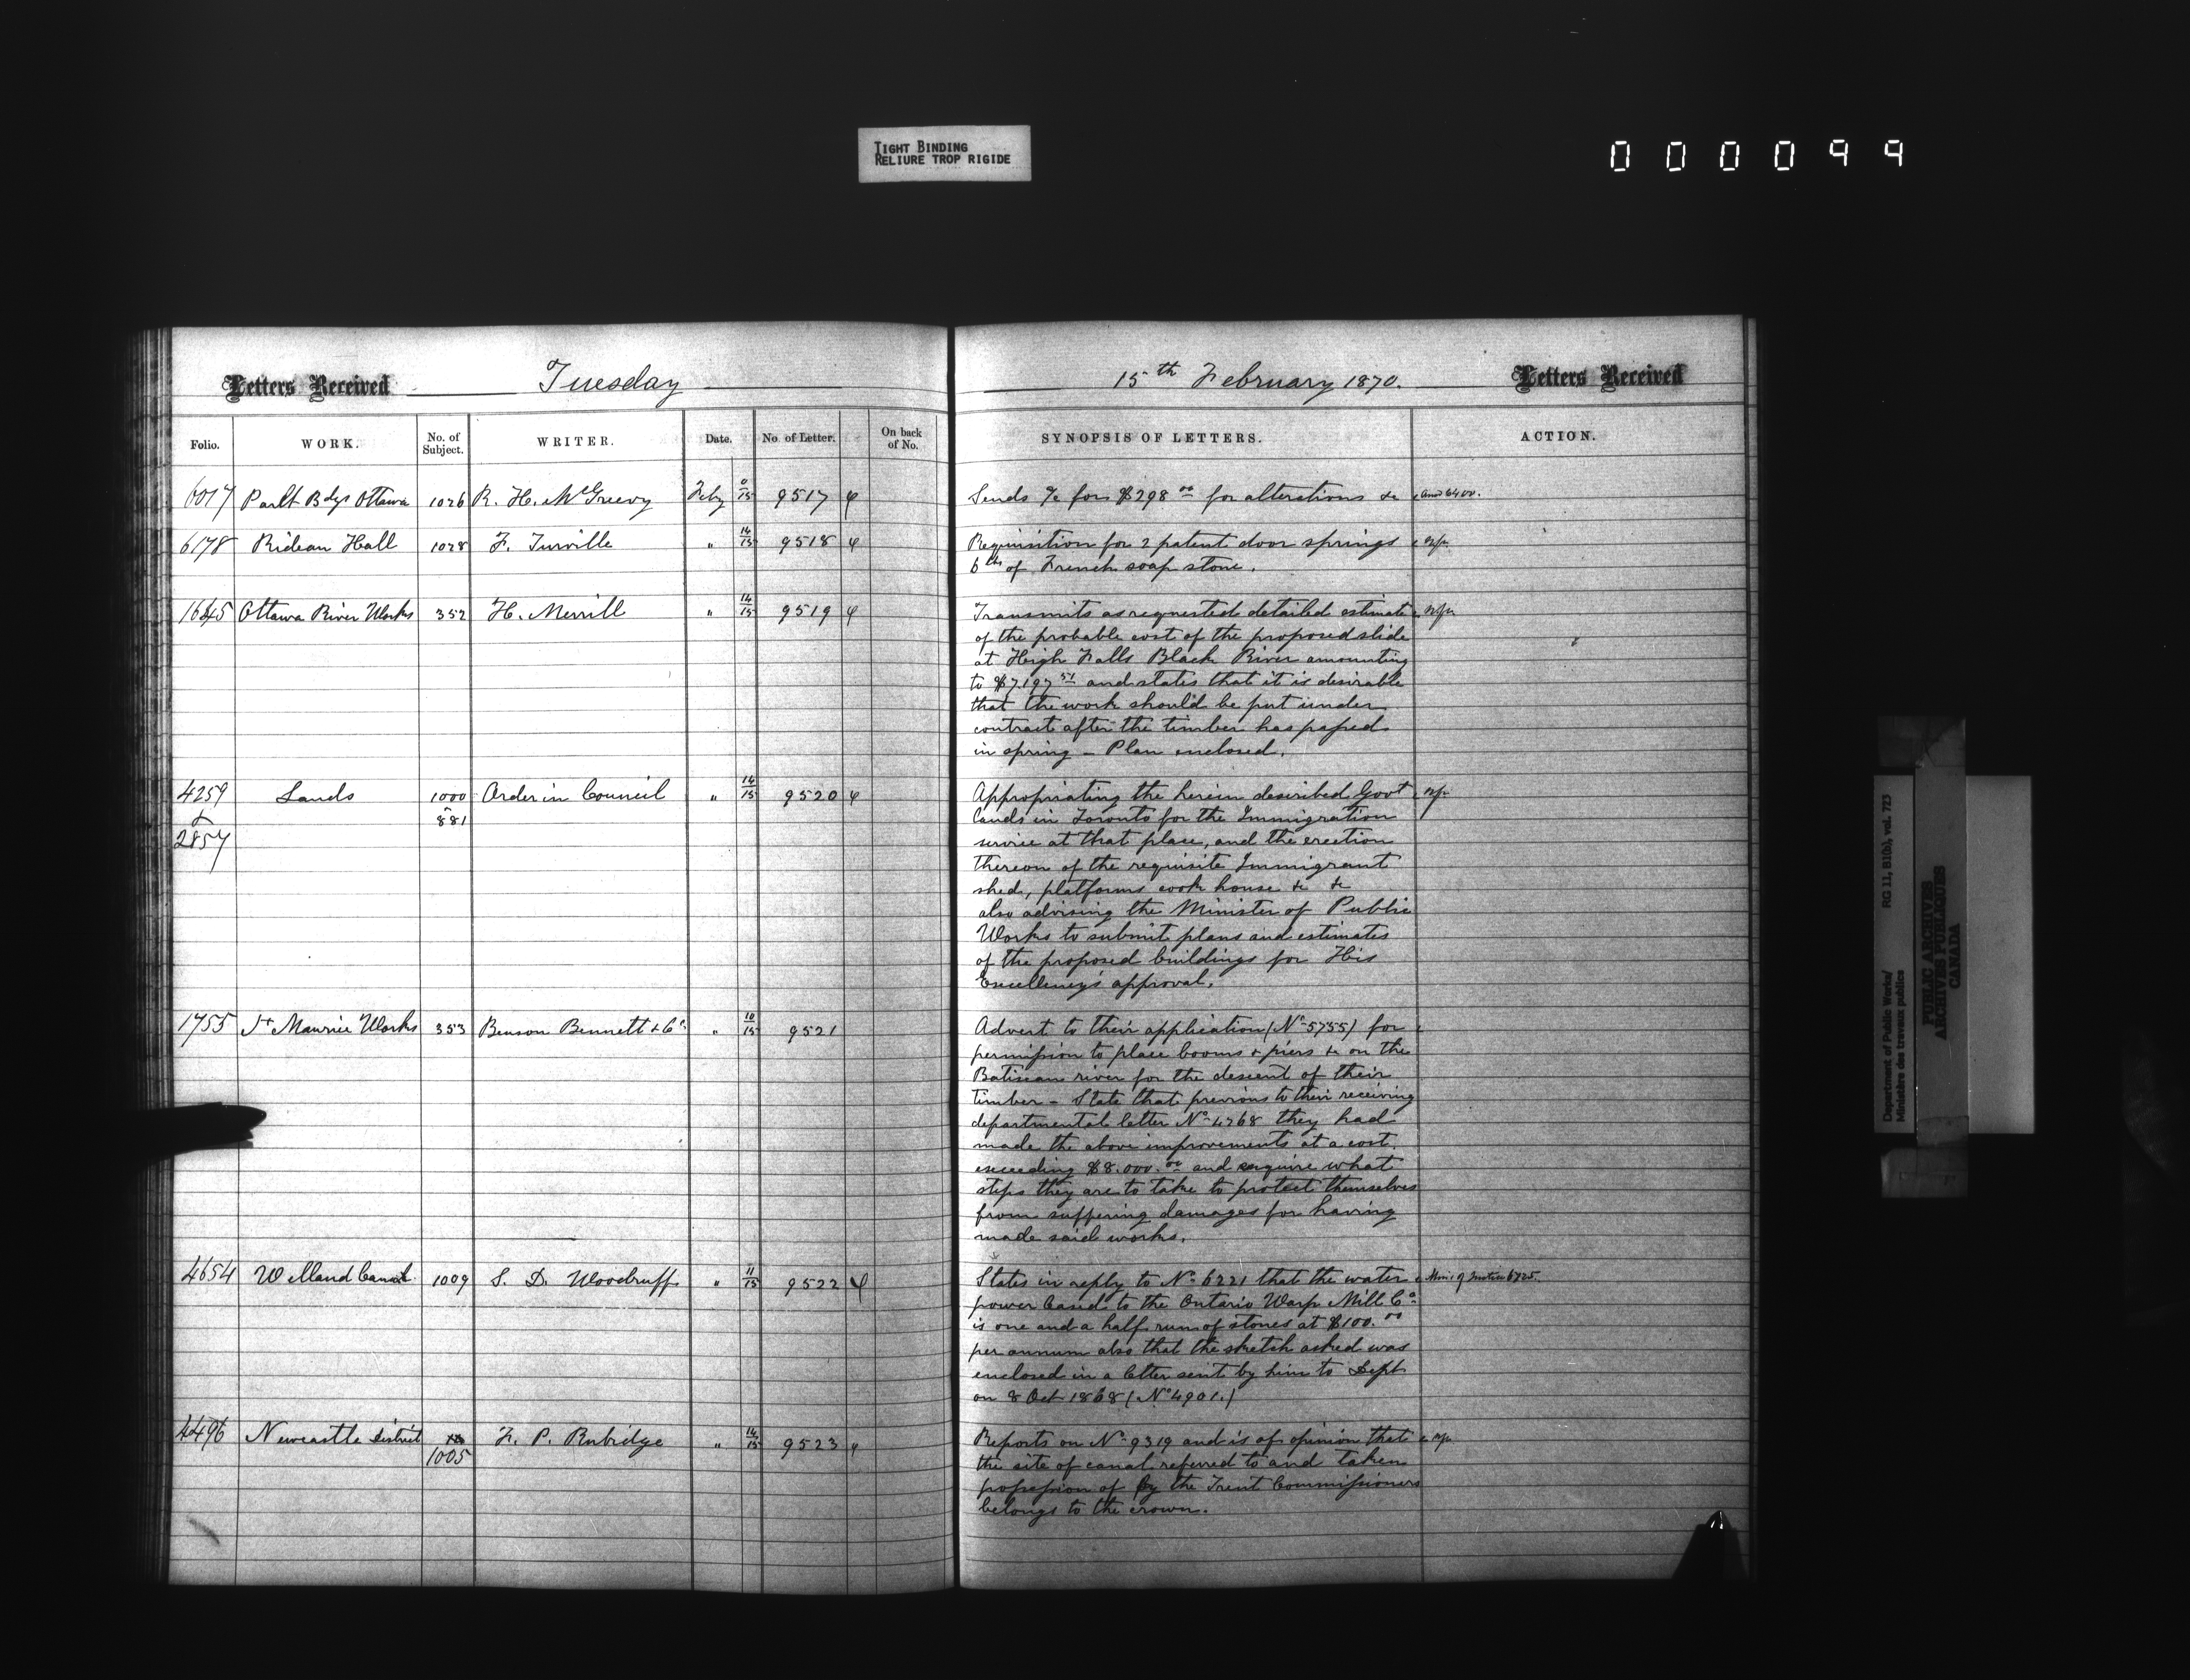 TIGHT BINDING
RELIURE TROP RIGIDE
000099
Letters Received Tuesday
Folio. WORK. No. of Subject. WRITER. Date. No. of Letter. On back of No.
6017 Parlt Bdgs Ottawa 1026 R. H. McGreevy Feby 0/15 9517
6178 Rideau Hall 1028 F. Turville " 14/15 9518
1645 Ottawa River Works 352 H. Merrill " 14/15 9519
4259 Lands 1000 Order in Council " 14/15 9520
& 881
2857
1755 St Maurice Works 353 Benson Bennett & Co " 10/15 9521
4654 Welland Canal 1009 S. D. Woodruff " 11/15 9522
4496 Newcastle District F. P. Rubidge " 14/15 9523
1005
15th February 1870. Letters Received
SYNOPSIS OF LETTERS. ACTION.
Sends a/c for $298 00 for alterations &c Ansd 6400.
Requisition for 2 patent door springs
6 lbs of French soap stone.
Transmits as requested detailed estimate
of the probable cost of the proposed slide
at High Falls Black River amounting
to $7.197 51 and states that it is desirable
that the work should be put under
contract after the timber has passed
in spring – Plan enclosed.
Appropriating the herein described Govt
lands in Toronto for the Immigration
service at that place, and the erection
thereon of the requisite Immigrant
shed, platforms cook house &c &c
also advising the Minister of Public
Works to submit plans and estimates
of the proposed buildings for His
Excellency's approval.
Advert to their application (No 5755) for
permission to place booms & piers &c on the
Batiscan river for the descent of their
timber – State that previous to their receiving
departmental letter No 4768 they had
made the above improvements at a cost
exceeding $8.000.00 and enquire what
steps they are to take to protect themselves
from suffering damages for having
made said works.
States in reply to No 6221 that the water Min: of Justice 6425.
power leased to the Ontario Warp Mill Co
is one and a half run of stones at $100.00
per annum also that the sketch asked was
enclosed in a letter sent by him to Dept
on 8 Oct 1868 (No 4901.)
Reports on No 9319 and is of opinion that
the site of canal referred to and taken
possession of by the Trent Commissioners
belongs to the crown.
Department of Public Works/ RG 11, B1(b), vol. 723
Ministère des travaux publics
PUBLIC ARCHIVES
ARCHIVES PUBLIQUES
CANADA